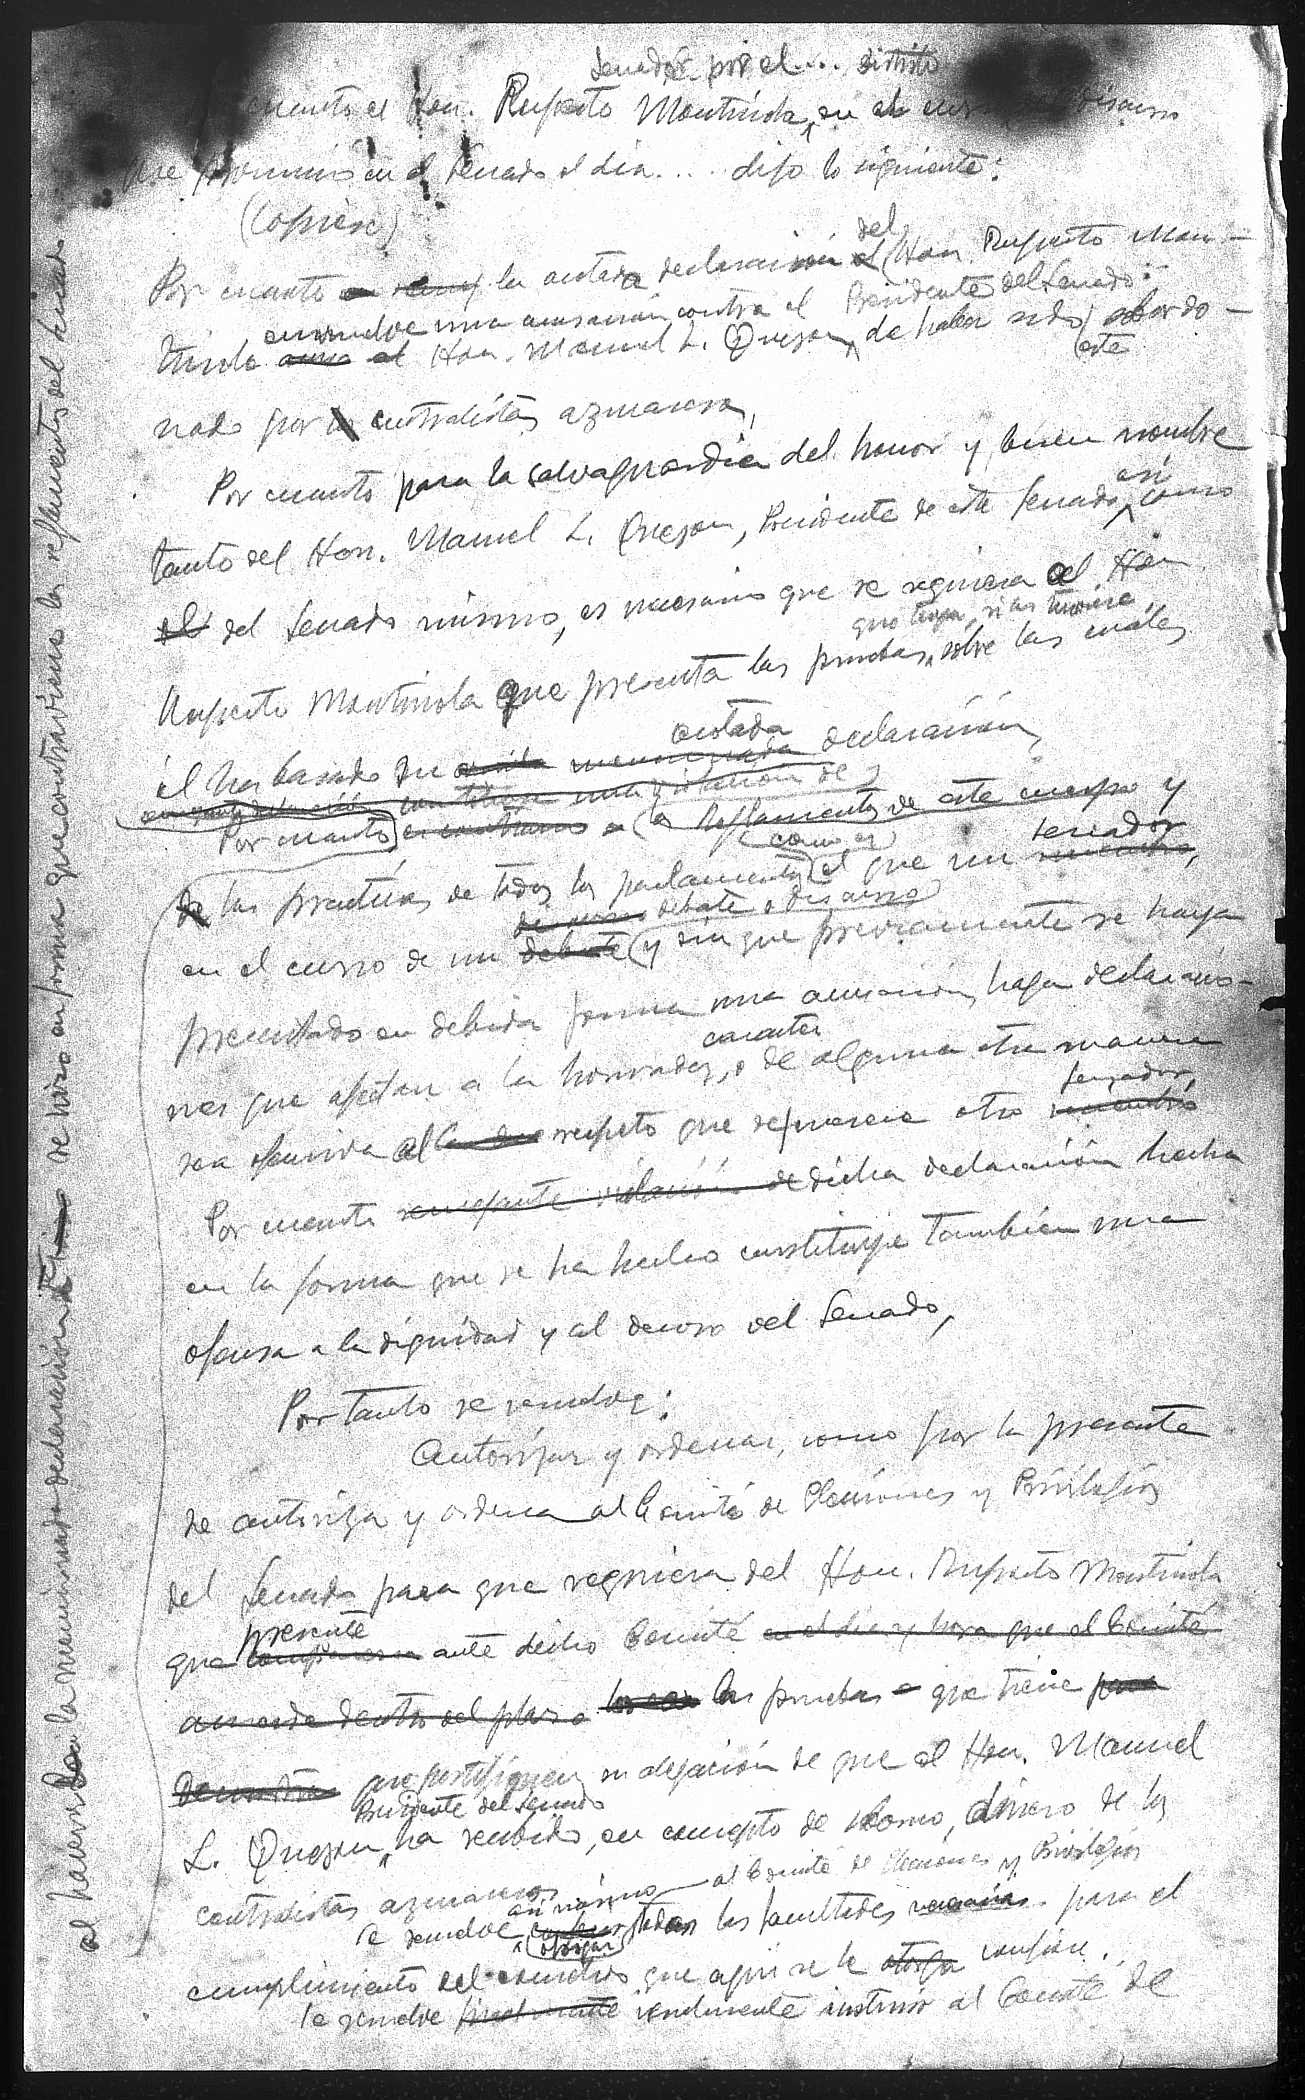 Senador por el ... distrito
cuanto el Hon. Ruperto Montinola, en el discurso
que pronunció en el Senado el día .... dijo lo siguiente:
(Copiese)
del
Por cuanto la citada declaración el Hon. Ruperto Mon-
envuelve una acusación contra el Presidente del Senado
tinola Hon. Manuel L. Quezon de haber sido sobordo-
este
nado por centralistas azucareros,
Por cuanto para la salvaguardia del honor y buen nombre
así
tanto del Hon. Manuel L. Quezon, Presidente de este Senado, como
el del Senado mismo, es necesario que se requiera al Hon.
que tenga, si las tuviere,
Ruperto Montinola que presenta las pruebas sobre las cuales
citada
él ha basado su mencionada declaración,
constituye una violación de
Por cuanto los Reglamentos de este cuerpo y
como es senador
de las practicas de todos los parlamentos el que un miembro,
debate o discurso
en el curso de un debate y sin que previamente se haya
presentado en debida forma una acusación, haga declaracio-
caracter
nes que afectan a la honradez, o de alguna otra manera
senador,
sea ofensiva al respeto que se merece otro miembro
Por cuanto semejante violación de dicha declaración hecha
en la forma que se ha hecho constituye también una
ofensa a la dignidad y al decoro del Senado,
Por tanto se resuelve:
Autorizar y ordenar, como por la presente
se autoriza y ordena al Comité de Elecciones y Privilegios
del Senado para que requiera del Hon. Ruperto Montinola
presente
que ante dicho Comité en el día y hora que el Comité
acuerde dentro del plazo las pruebas que tiene para
demostrar que justifiquen su alegación de que el Hon. Manuel
Presidente del Senado
L. Quezon ha recibido, en concepto de soborno, dinero de los
al Comité de Elecciones y Privilegios
centralistas azucareros
así mismo
Se resuelve otorgar todas las facultades necesarias para el
cumplimiento del cometido que aquí se le otorga confiere.
Se resuelve finalmente instruir al Comité de
al haberse la mencionada declaración se hizo en forma que contraviene los reglamentos del Senado